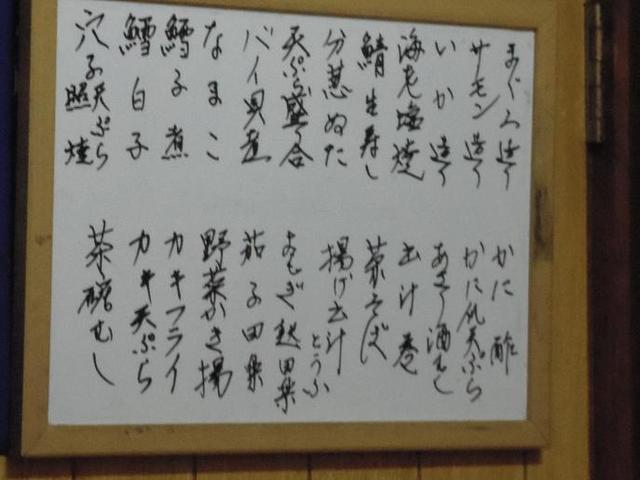 まぐろ造り
サーモン造り
いか造り
海老塩焼
鯖生寿し
分葱ぬた
天ぷら盛り合
バイ貝煮
なまこ
鱈子煮
鱈白子
穴子天ぷら
照焼
かに酢
かに爪天ぷら
あさり酒むし
出汁巻
茶そば
揚げ出汁とうふ
よもぎ麩田楽
茄子田楽
野菜かき揚
カキフライ
カキ天ぷら
茶碗むし